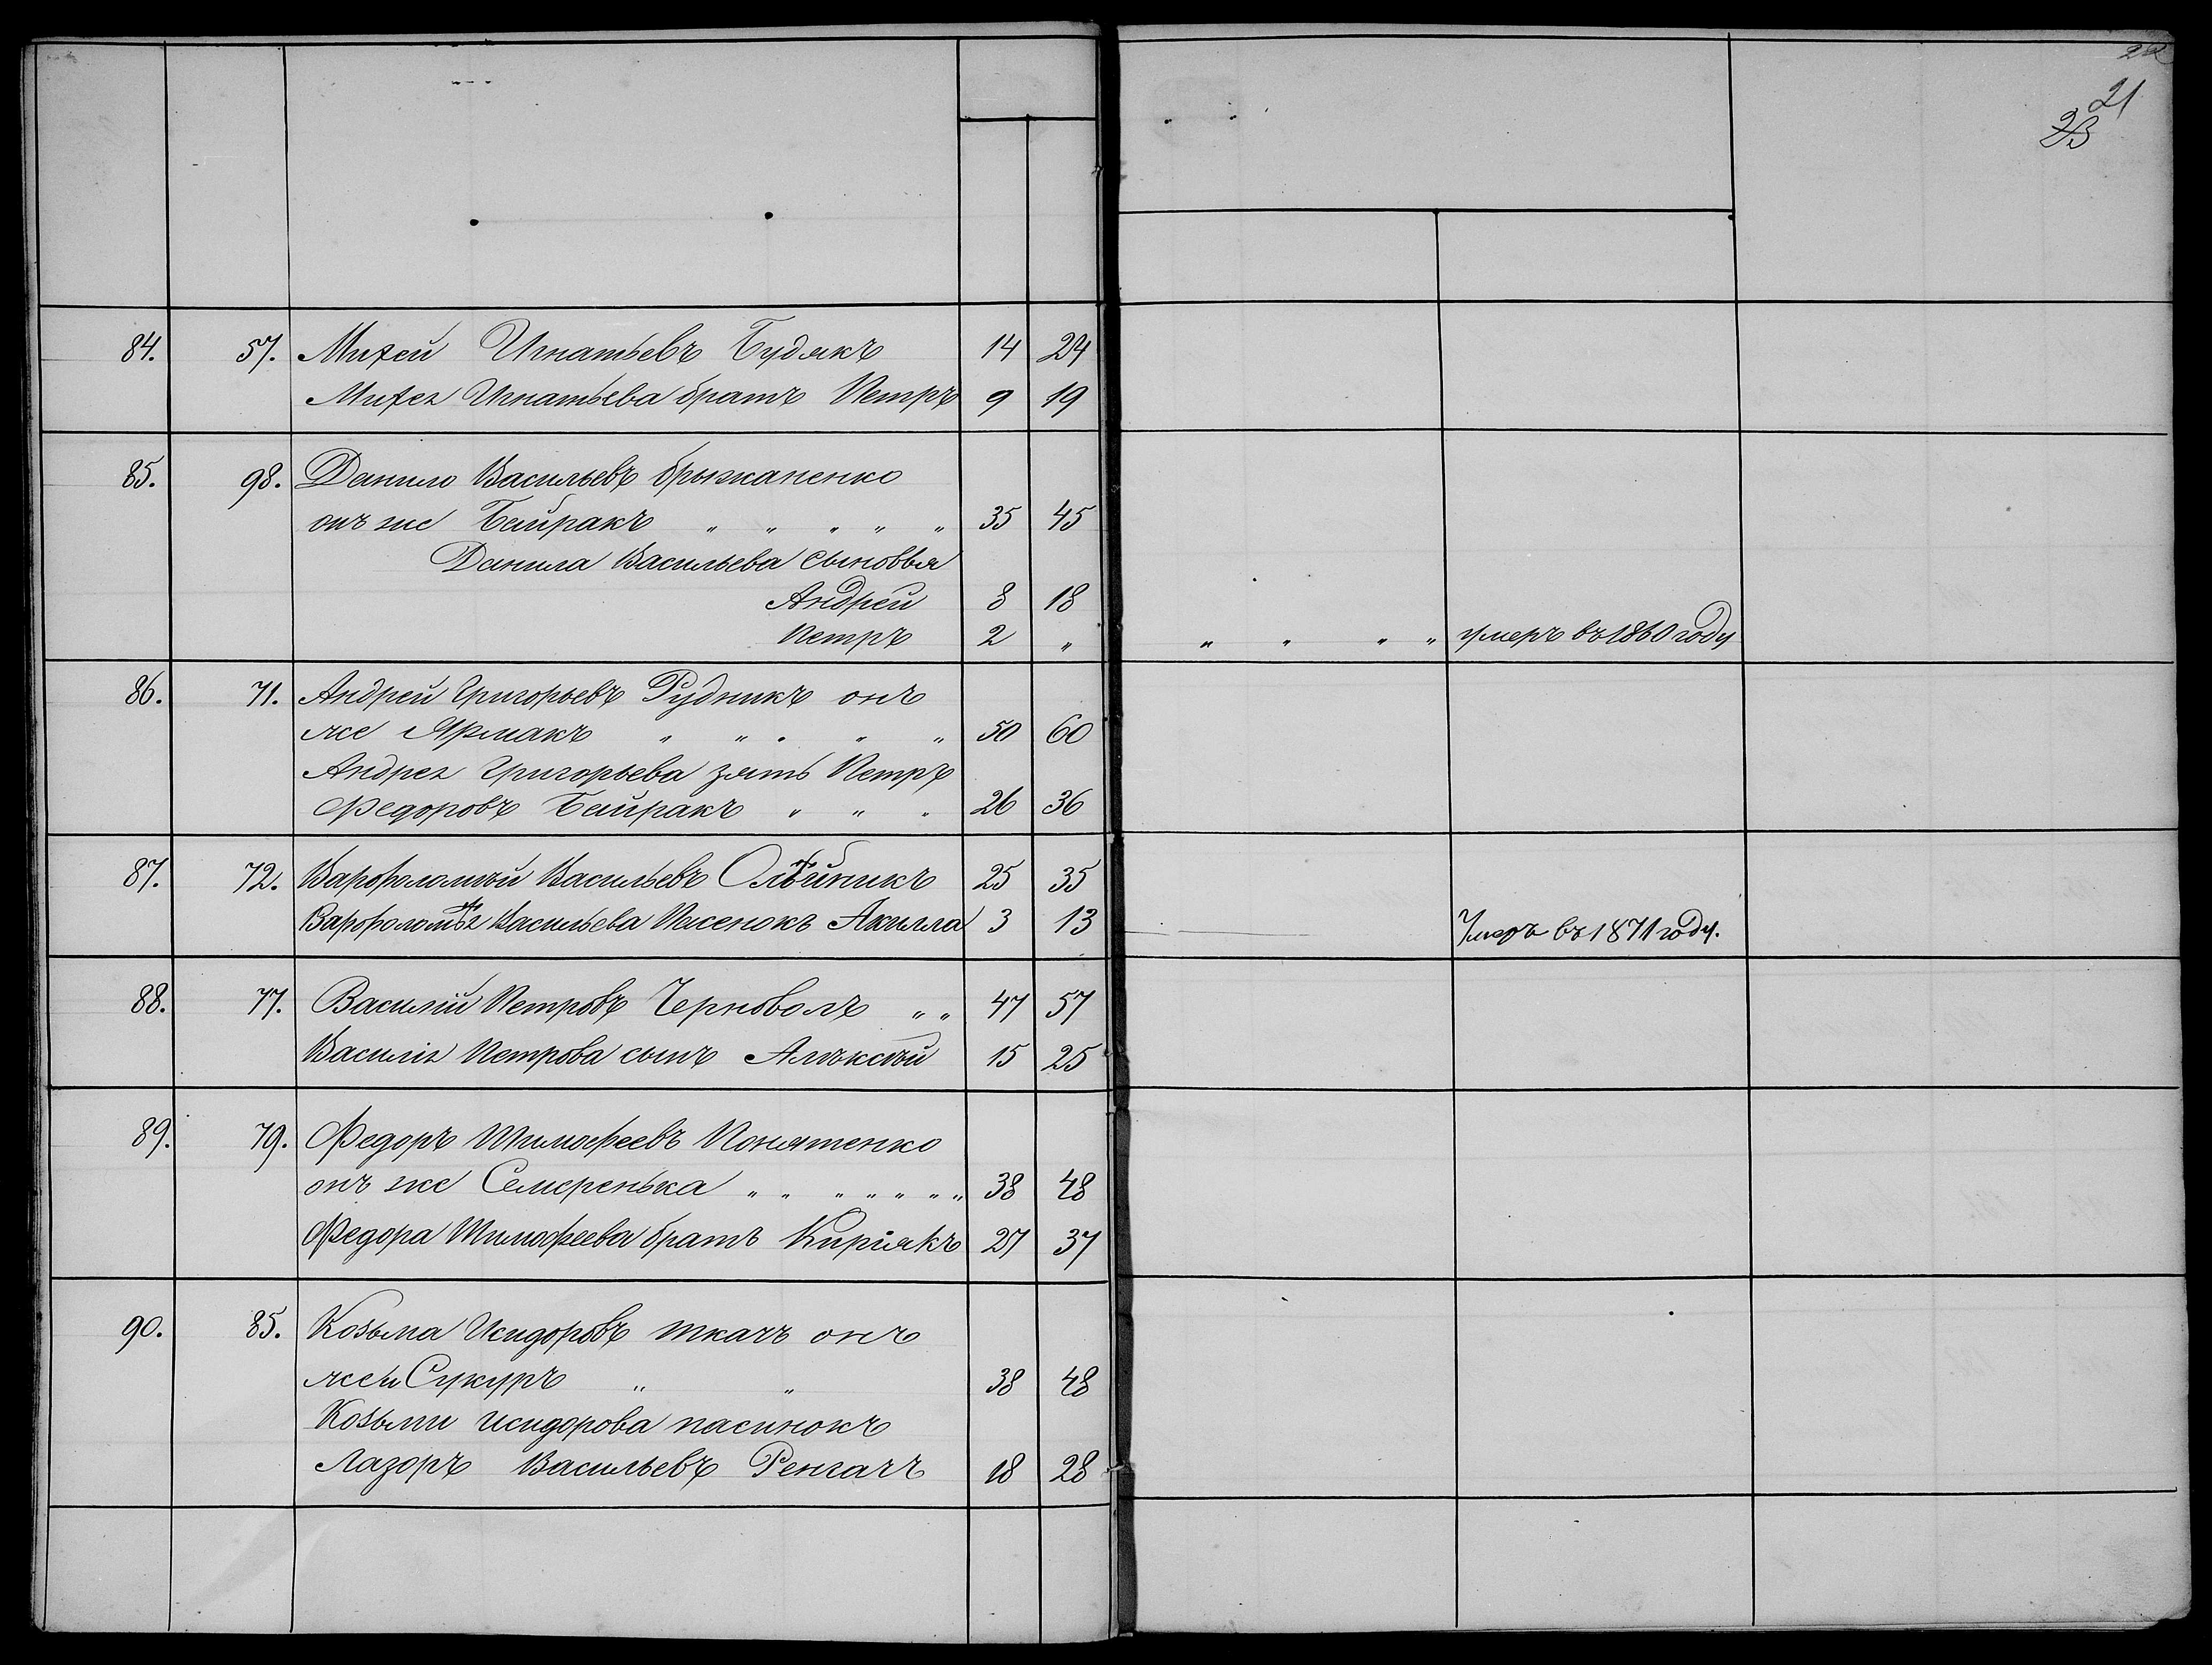 22
21
23
84. 57. Михей Игнатьевъ Будякъ 14 24
Михея Игнатьева братъ Петръ 9 19
85. 98. Данило Васильевъ Брыжаненко
онъ же Байракъ " " " " " 35 45
Данила Васильева сыновья
Андрей 8 18
Петръ 2 " " " " " умеръ въ 1860 году
86. 71. Андрей Григорьевъ Рудникъ онъ
же Ярмакъ " " " " " 50 60
Андрея Григорьева зять Петръ
Федоровъ Байракъ " " " 26 36
87. 72. Варфоломей Васильевъ Олѣйникъ 25 35
Варфоломѣя Васильева Пасенокъ Акилла 3 13 Умеръ въ 1871 году.
88. 77. Василій Петровъ Черноволъ " " 47 57
Василія Петрова сынъ Алѣксѣй 15 25
89. 79. Федоръ Тимофеевъ Понятенко
онъ же Семеренька " " " " " " " 38 48
Федора Тимофеева братъ Киріякъ 27 37
90. 85. Козьма Исидоровъ Ткачъ онъ
же и Сукуръ " " 38 48
Козьми Исидорова пасинокъ
Лазоръ Васильевъ Ренгачъ 18 28